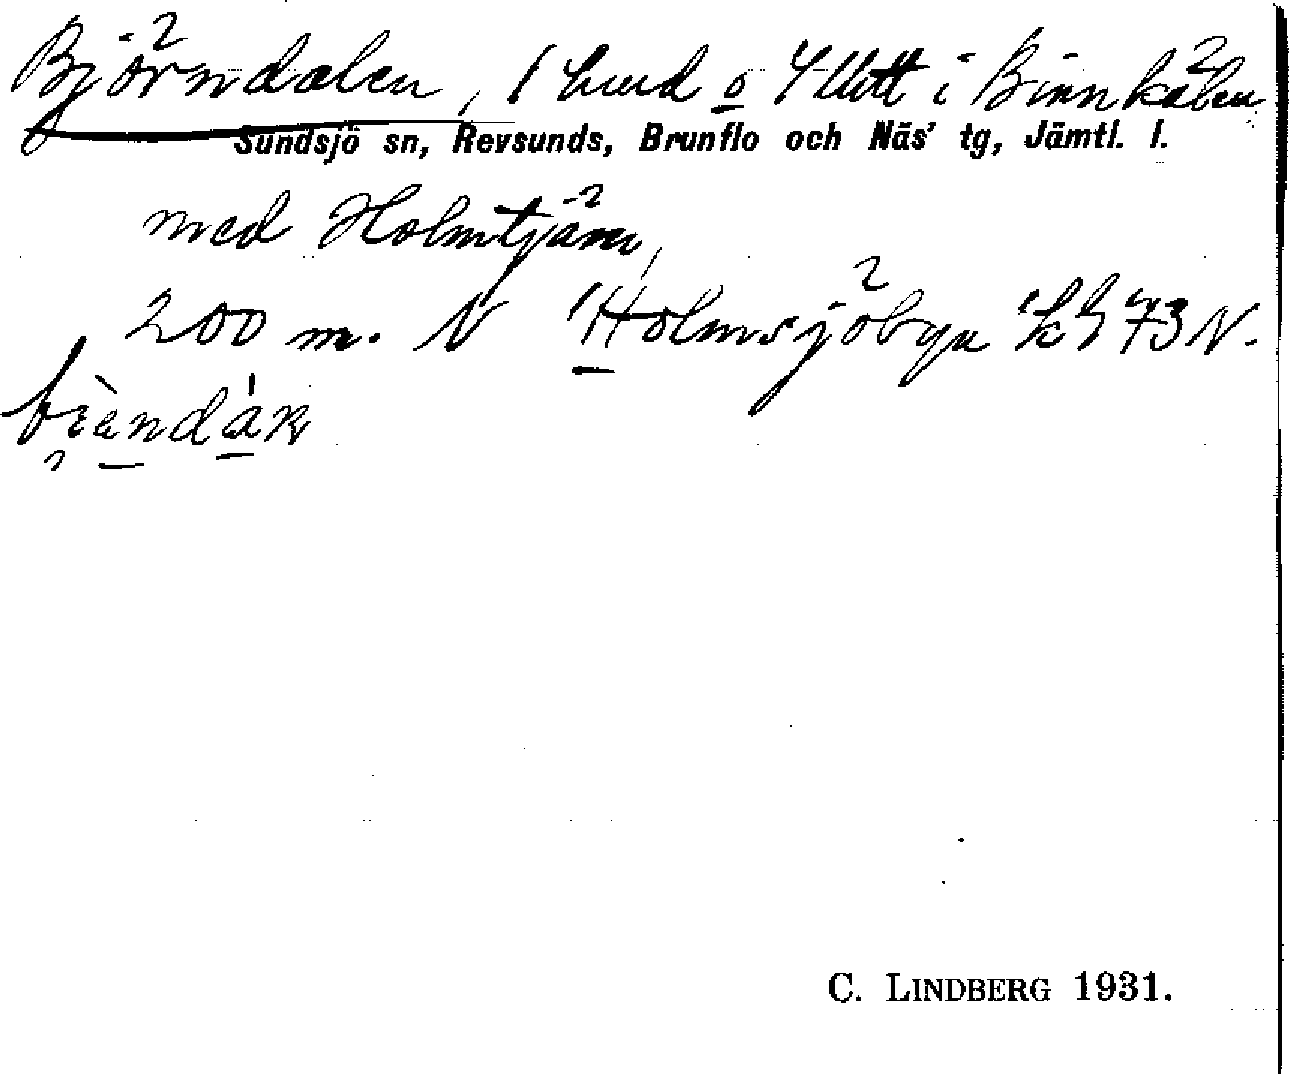 Björndalen, 1 hmd o 4 lht i Binnkölen
Sundsjö sn, Revsunds, Brunflo och Näs' tg, Jämtl. l.
med Holmtjärn,
200 m. N Holmsjöbyn 73 N.
C. LINDBERG 1931.